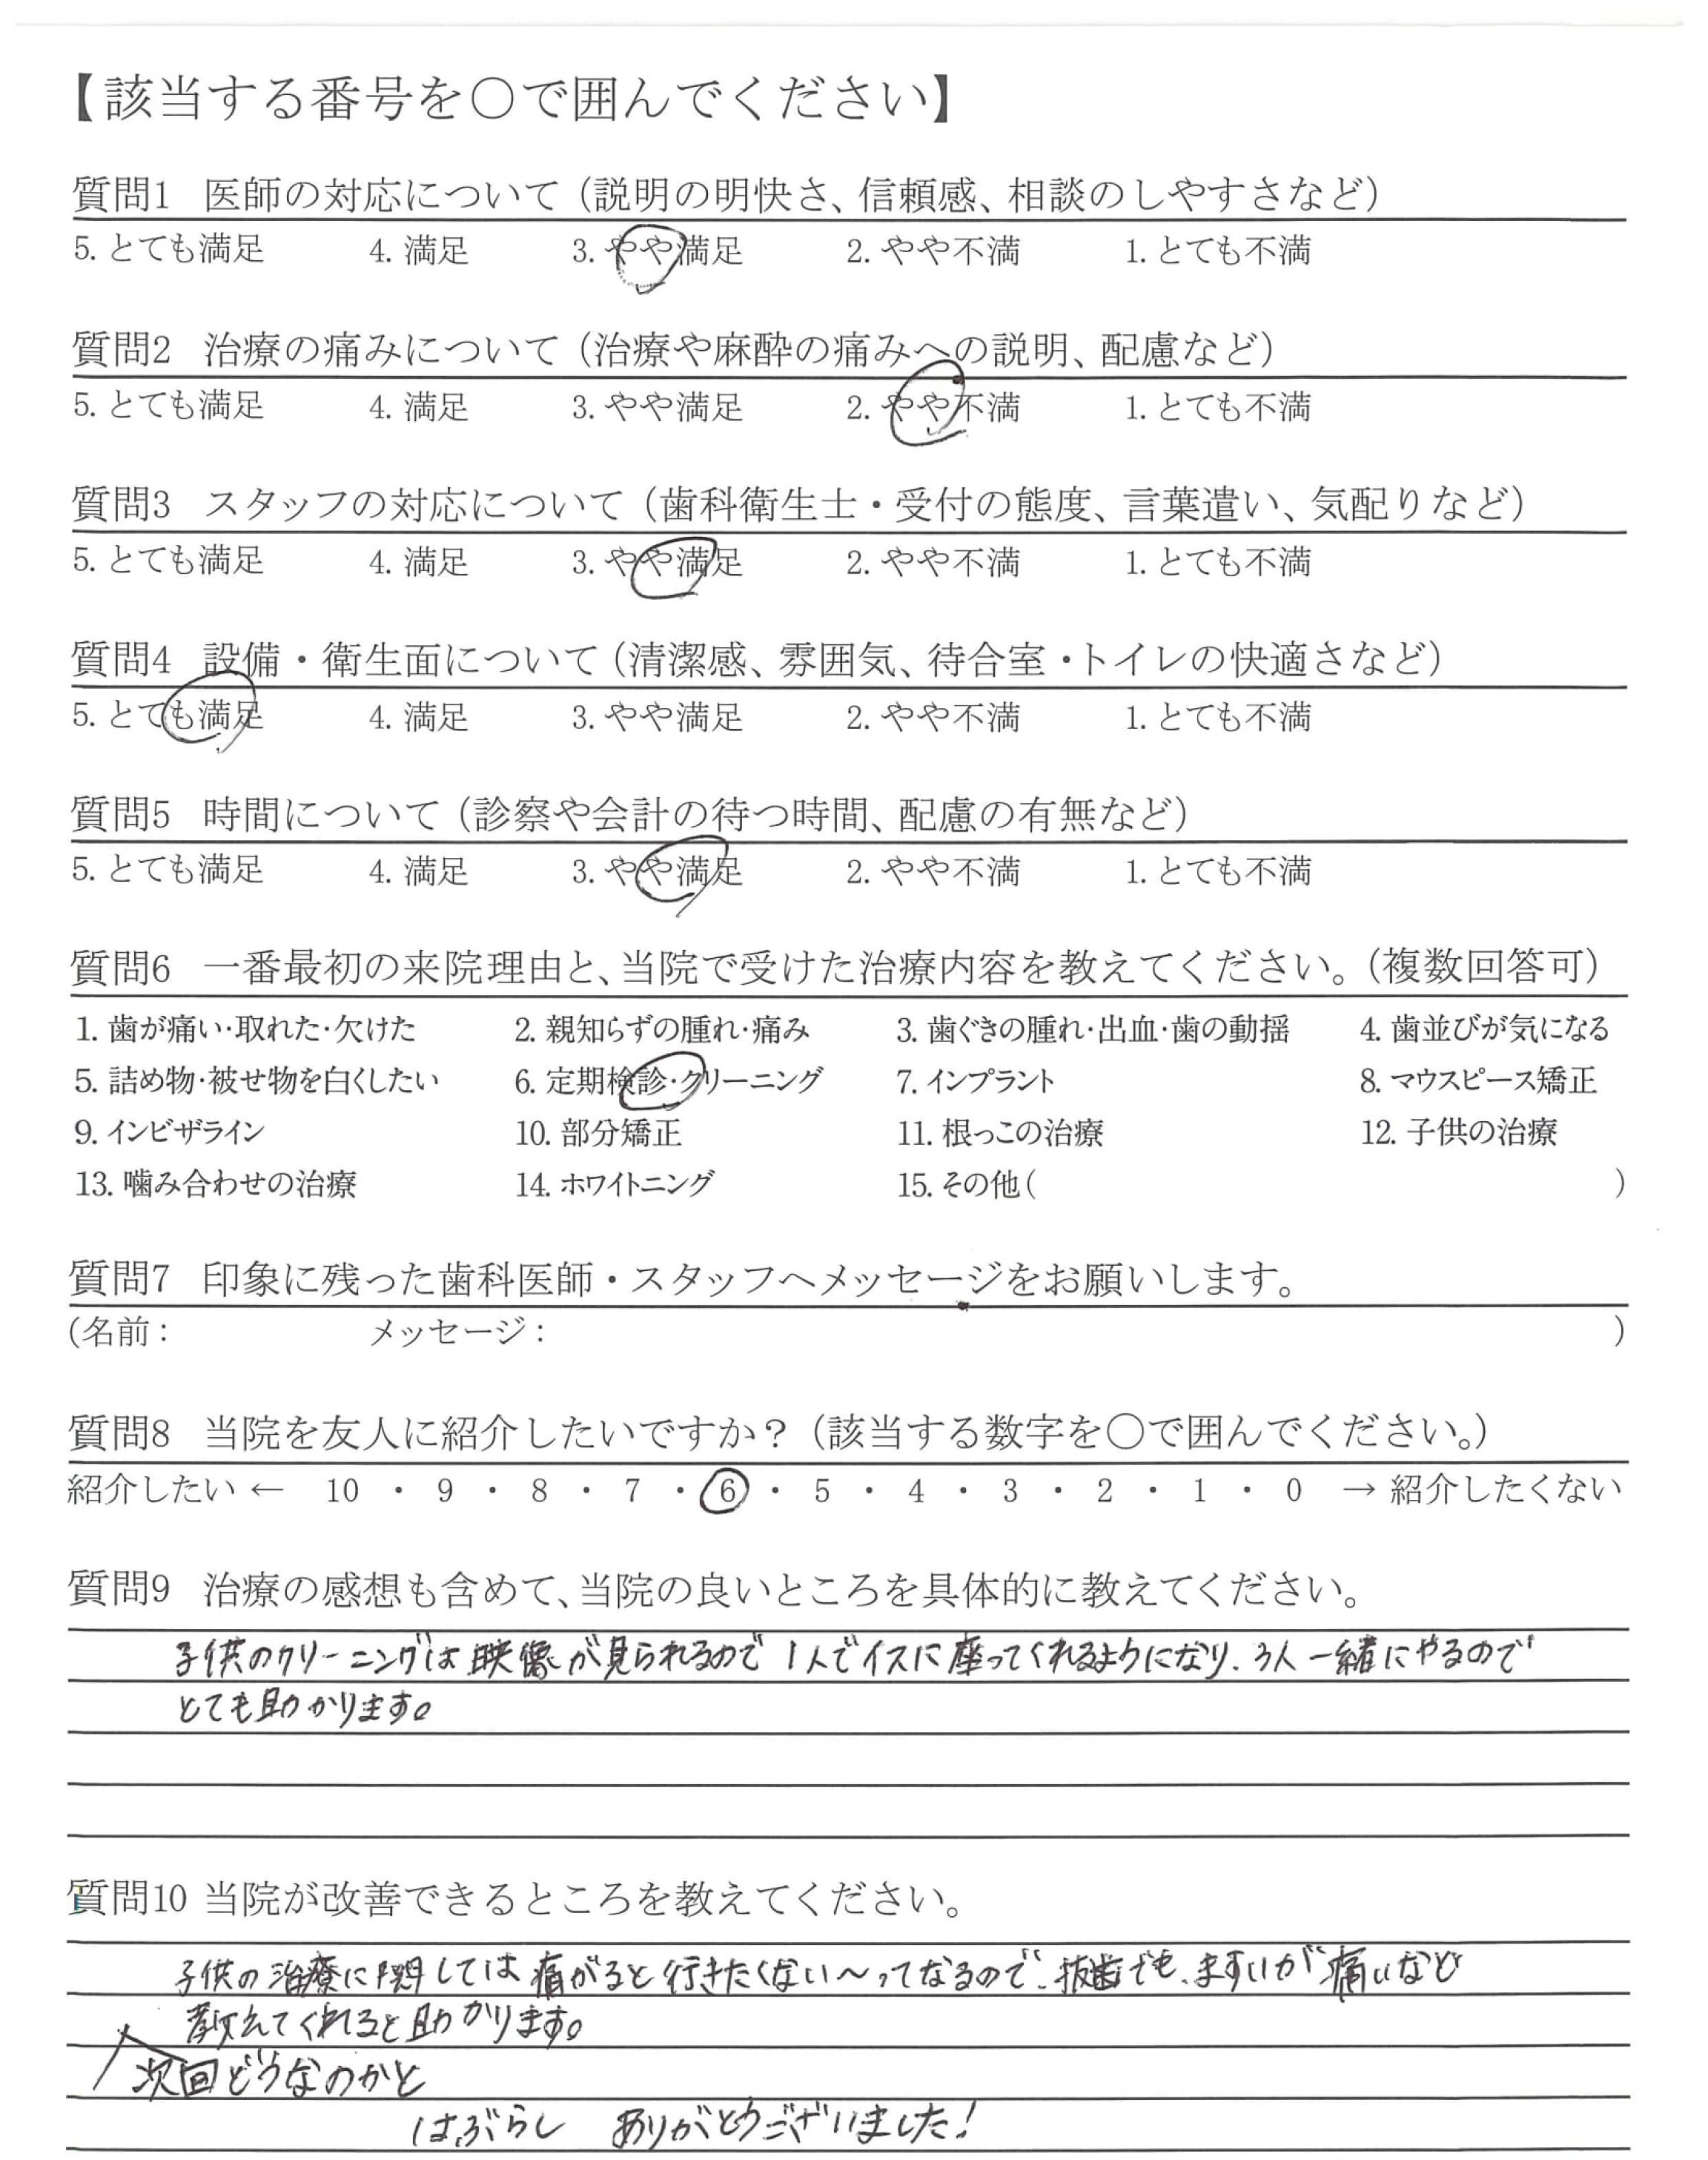 【該当する番号を○で囲んでください】
質問1 医師の対応について（説明の明快さ、信頼感、相談のしやすさなど）
5. とても満足 4. 満足 3. やや満足 2. やや不満 1. とても不満
質問2 治療の痛みについて（治療や麻酔の痛みへの説明、配慮など）
5. とても満足 4. 満足 3. やや満足 2. やや不満 1. とても不満
質問3 スタッフの対応について（歯科衛生士・受付の態度、言葉遣い、気配りなど）
5. とても満足 4. 満足 3. やや満足 2. やや不満 1. とても不満
質問4 設備・衛生面について（清潔感、雰囲気、待合室・トイレの快適さなど）
5. とても満足 4. 満足 3. やや満足 2. やや不満 1. とても不満
質問5 時間について（診察や会計の待つ時間、配慮の有無など）
5. とても満足 4. 満足 3. やや満足 2. やや不満 1. とても不満
質問6 一番最初の来院理由と、当院で受けた治療内容を教えてください。（複数回答可）
1. 歯が痛い・取れた・欠けた 2. 親知らずの腫れ・痛み 3. 歯ぐきの腫れ・出血・歯の動揺 4. 歯並びが気になる
5. 詰め物・被せ物を白くしたい 6. 定期検診・クリーニング 7. インプラント 8. マウスピース矯正
9. インビザライン 10. 部分矯正 11. 根っこの治療 12. 子供の治療
13. 噛み合わせの治療 14. ホワイトニング 15. その他（ ）
質問7 印象に残った歯科医師・スタッフへメッセージをお願いします。
（名前： メッセージ： ）
質問8 当院を友人に紹介したいですか？（該当する数字を○で囲んでください。）
紹介したい ← 10 ・ 9 ・ 8 ・ 7 ・ 6 ・ 5 ・ 4 ・ 3 ・ 2 ・ 1 ・ 0 → 紹介したくない
質問9 治療の感想も含めて、当院の良いところを具体的に教えてください。
子供のクリーニングは映像が見られるので1人でイスに座ってくれるようになり、3人一緒にやるので
とても助かります。
質問10 当院が改善できるところを教えてください。
子供の治療に関しては痛がると行きたくない〜ってなるので、抜歯でも、ますいが痛いなど
教えてくれると助かります。
次回どうなのかと
はぶらし ありがとうございました！